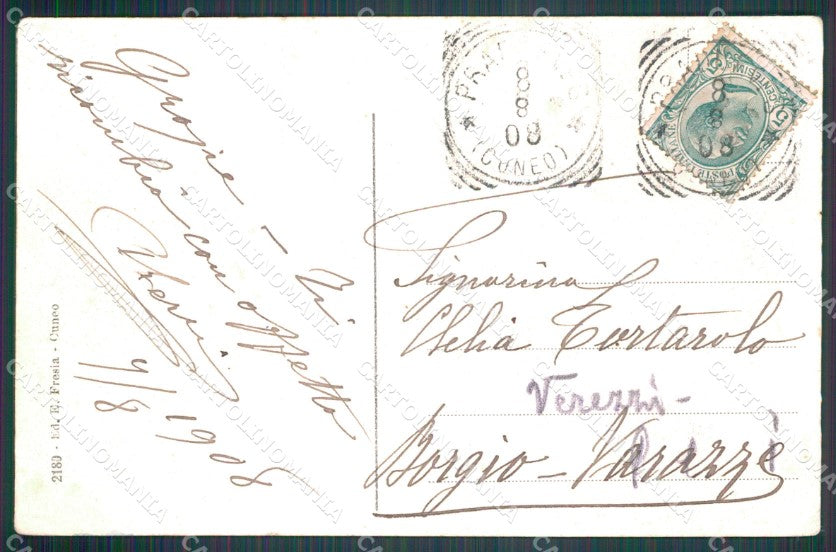 Grazie - Vi
ricambio con affetto
7/8 1908
2180 - Ed. E. Fresia - Cuneo
8
8
08
(CUNEO)
8
8
08
CENTESIMI
POSTE ITALIANE
Signorina
Clelia Tortarolo
Verezzi-
Borgio-Varazze
CARTOLINOMANIA